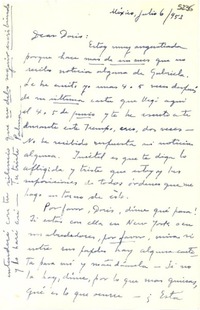 México, julio 6/952
Dear Doris:
Estoy muy angustiada
porque hace más de un mes que no
recibo noticia alguna de Gabriela.
Le he escrito ya unas 4 o 5 veces después
de su última carta que llegó aquí
el 4 o 5 de junio y te he escrito a ti
durante este tiempo, creo, dos veces —
No he recibido respuesta ni noticia
alguna. Inútil es que te diga lo
afligida y triste que estoy y las
suposiciones de todos órdenes que me
hago en torno de ello.
Por favor, Doris, dime qué pasa!
Si estás con ella en New York o en
sus alrededores, por favor, mira si
entre sus papeles hay alguna carta
para mí y mándamela — Si no
la hay, dime, por lo que más quieras,
qué es lo que ocurre — ¿Está